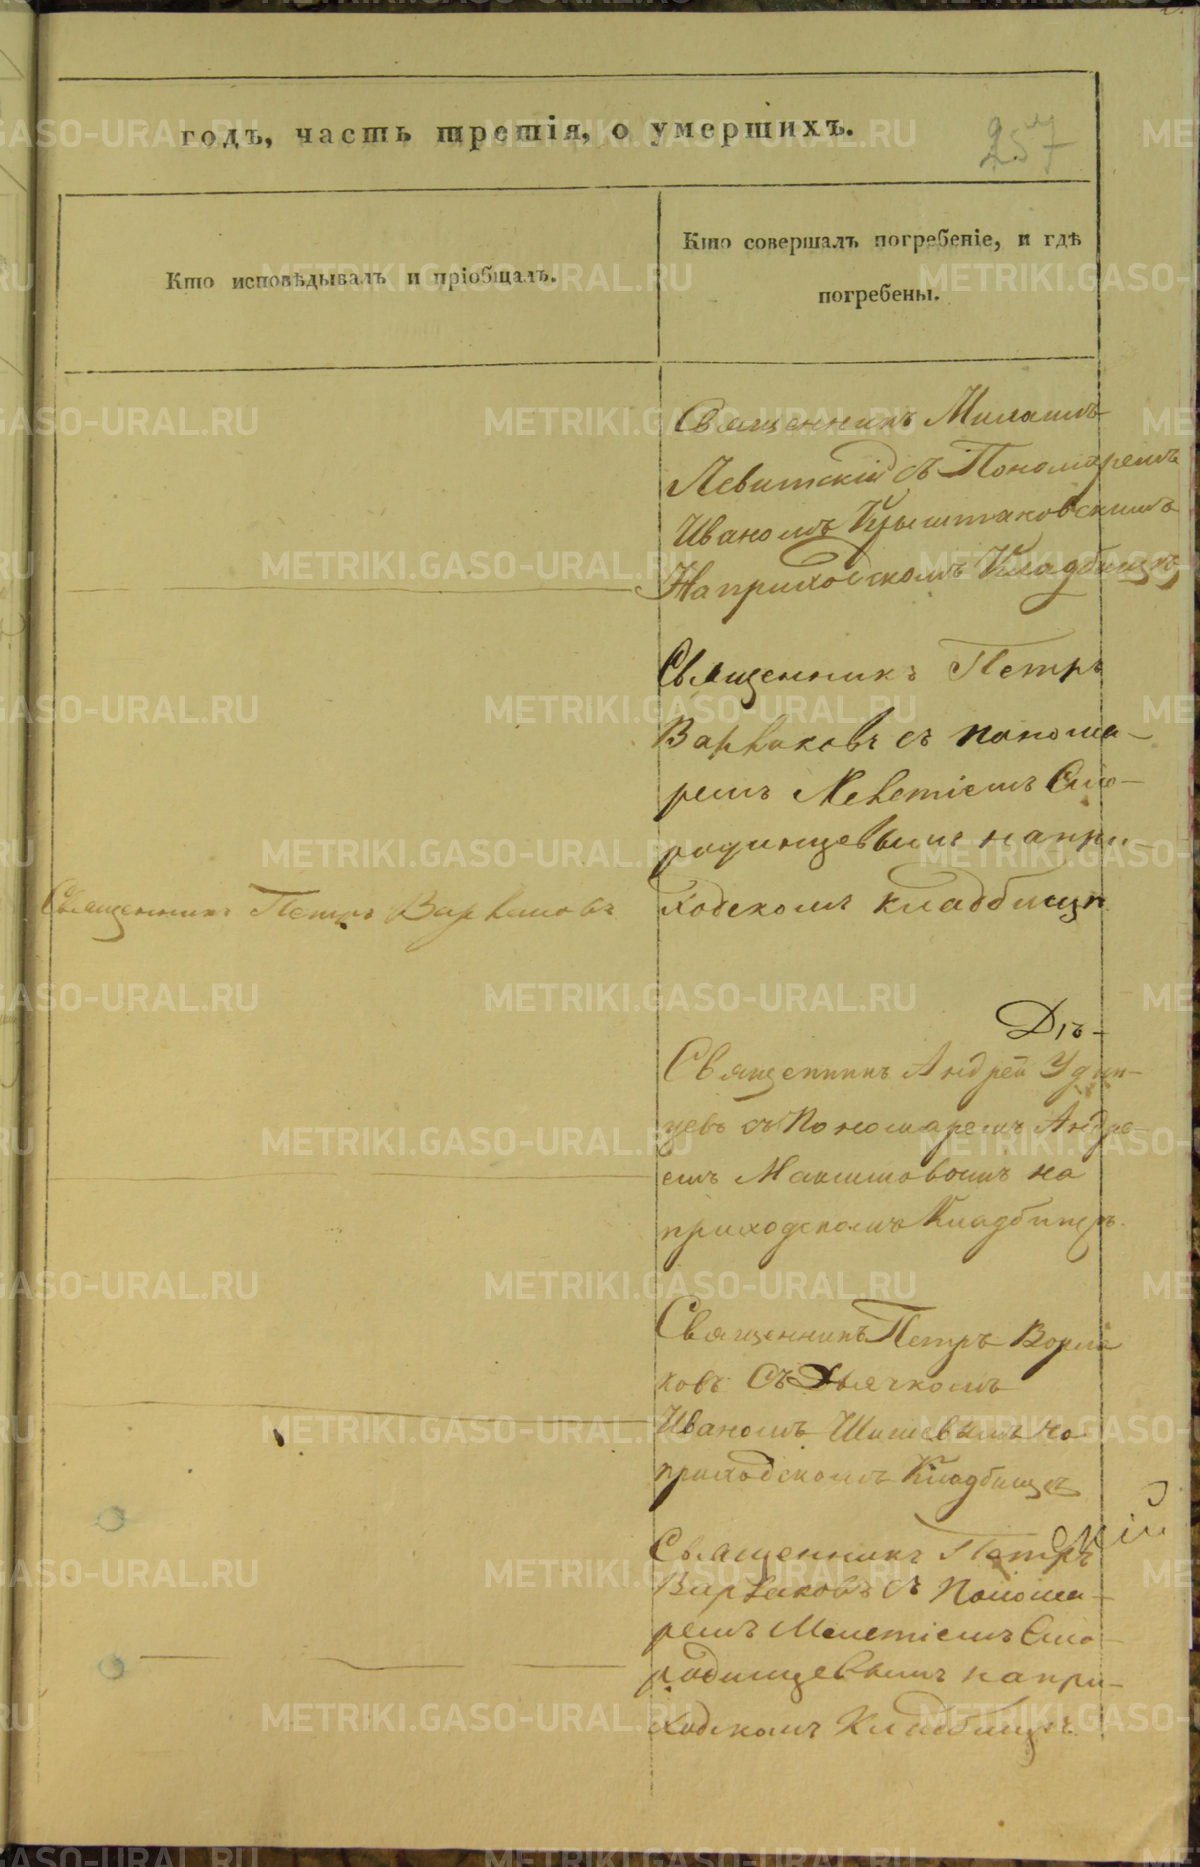 годъ, часть третія, о умершихъ.
257
Кто исповѣдывалъ и пріобщалъ.
Кто совершалъ погребеніе, и гдѣ
погребены.
Священникъ
Левитскій съ Пономаремъ
Иваномъ Крыштаковскимъ
На приходскомъ Кладбищѣ
Священникъ Петръ
Варваковъ съ понома-
ремъ Мелетіемъ Смо-
родинцевымъ на при-
ходскомъ кладбищѣ
Священникъ Петръ Варваковъ
Священникъ Андрей Удин-
цевъ съ Пономаремъ Андре-
емъ Максимовымъ на
приходскомъ Кладбищѣ.
Священникъ Петръ Варва
ковъ Съ Дьячкомъ
Иваномъ Шишевымъ на
приходскомъ Кладбищѣ
Священникъ Петръ
Варваковъ съ Понома-
ремъ Мелетіемъ Смо-
родинцевымъ на при-
ходскомъ Кладбищѣ
METRIKI.GASO-URAL.RU